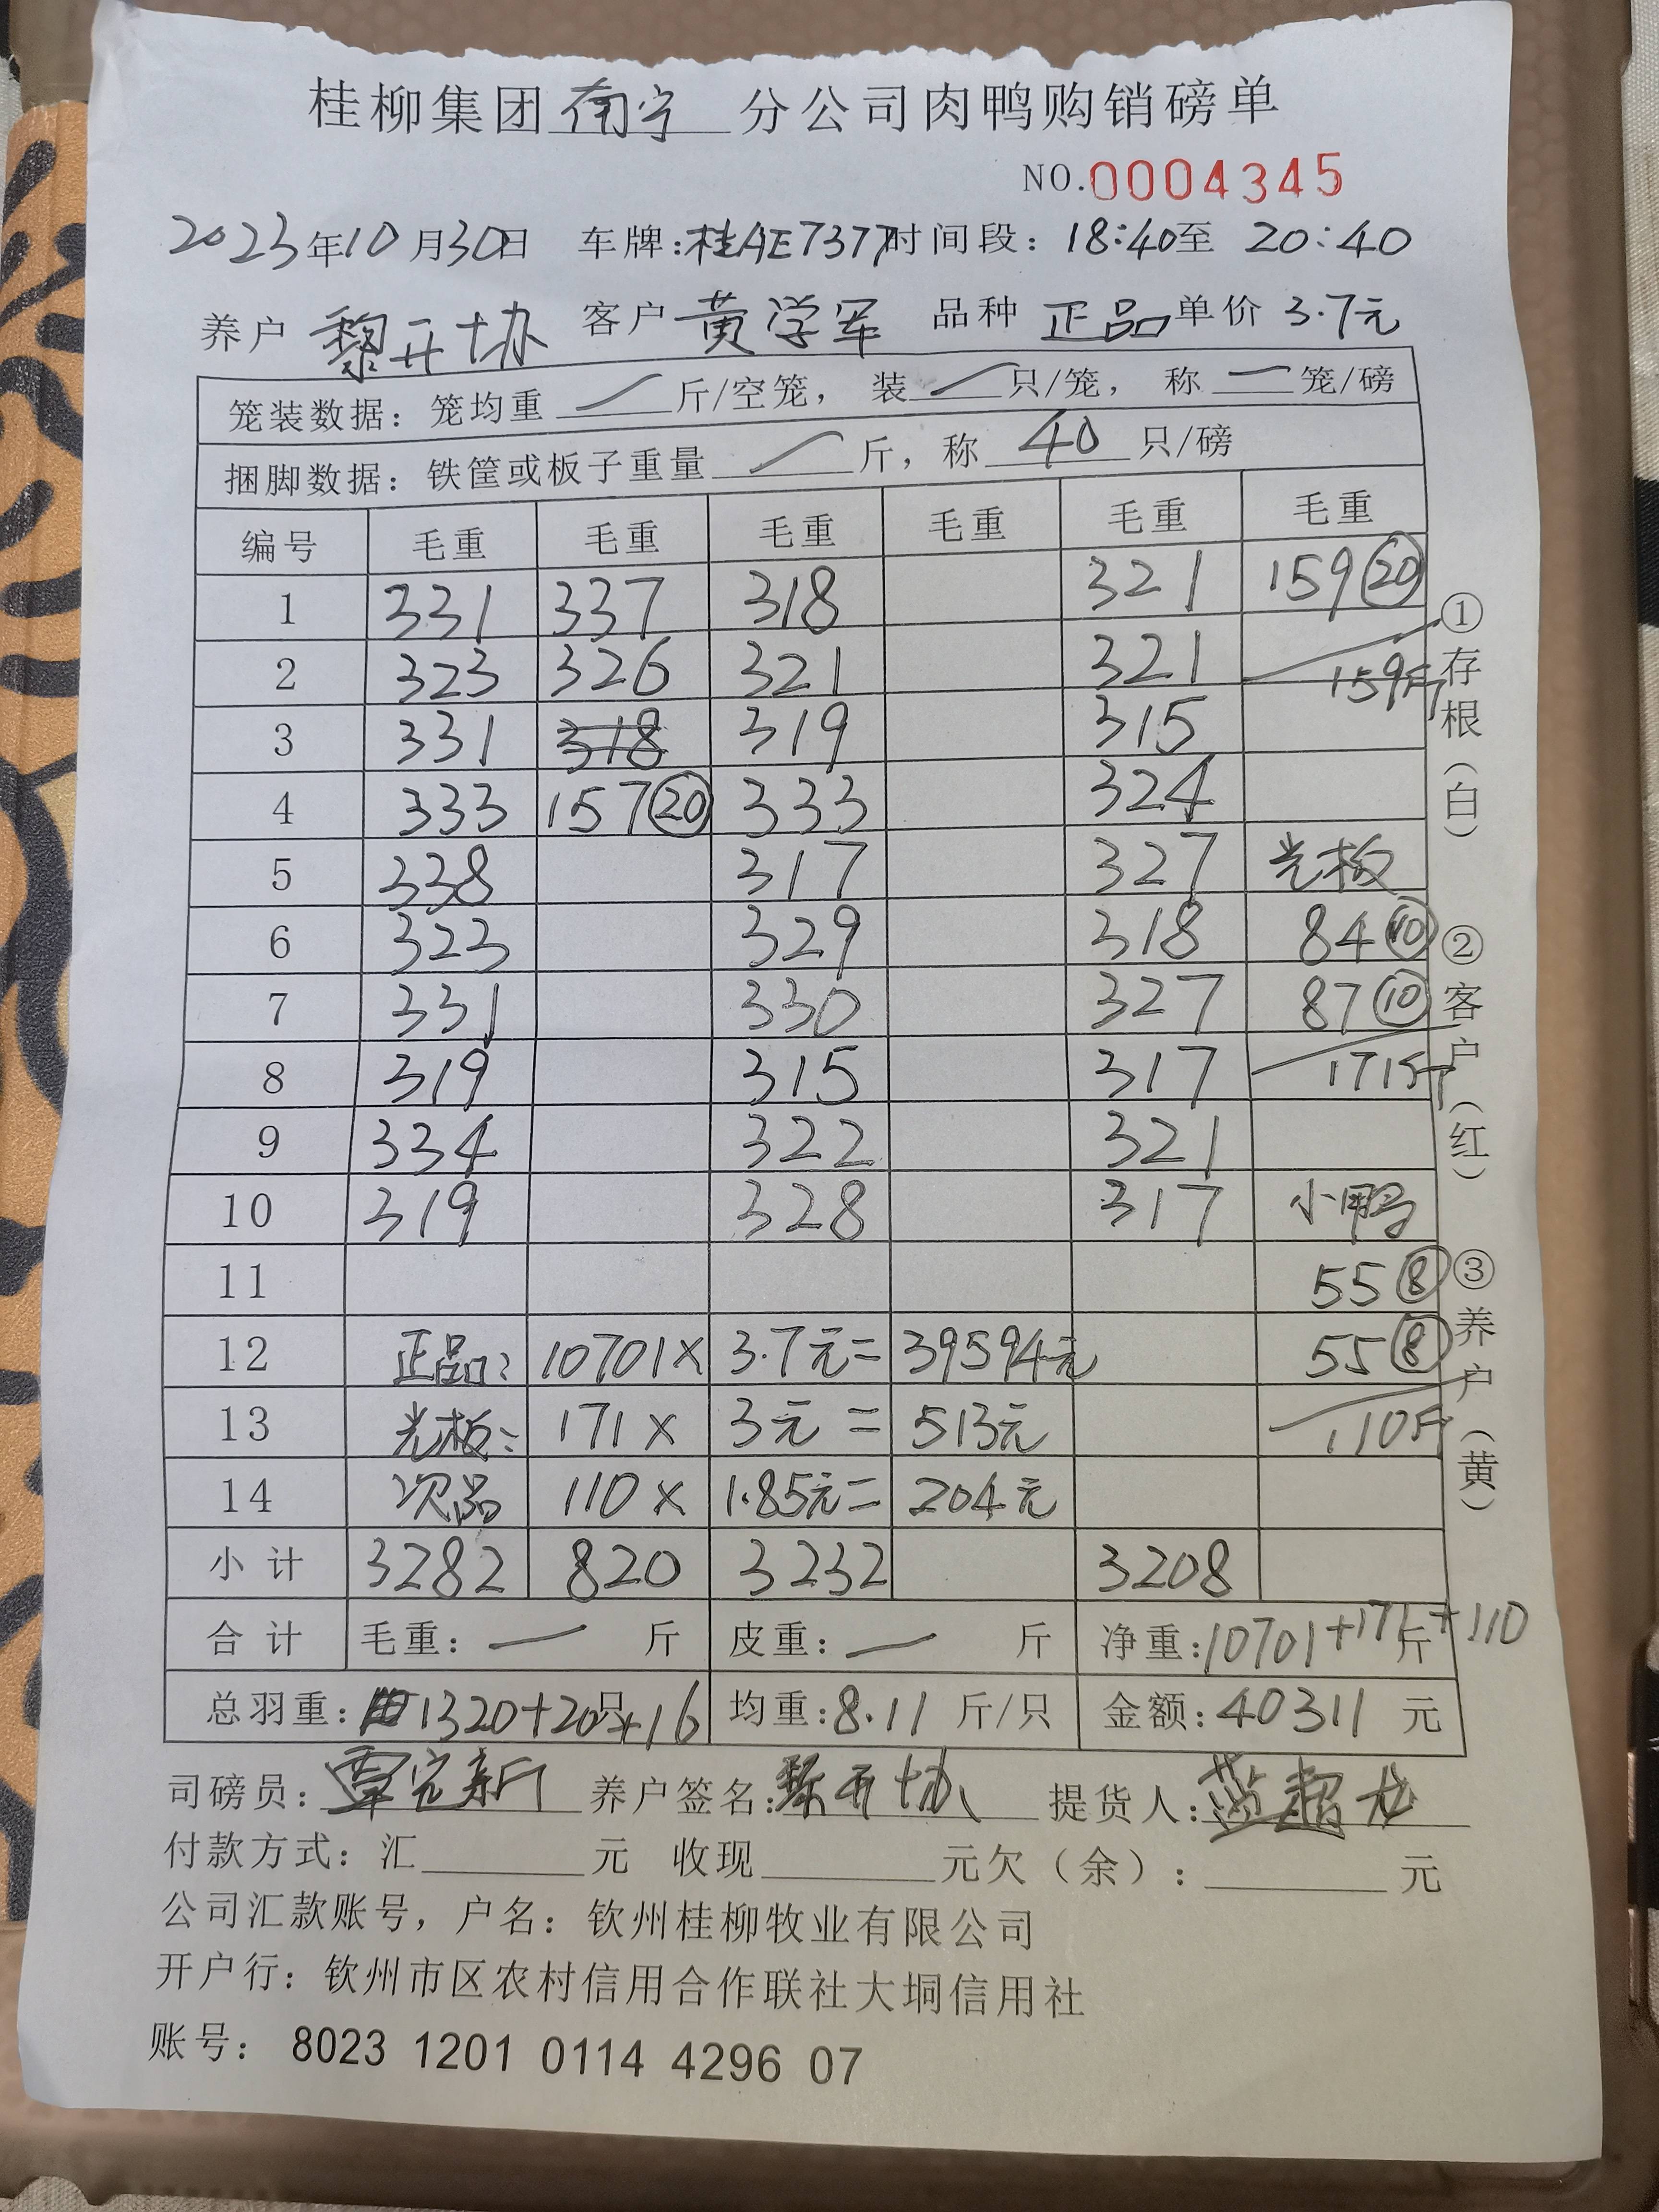 桂柳集团南宁分公司肉鸭购销磅单
NO.0004345
2023年10月30日 车牌:桂AE7377时间段: 18:40至 20:40
养户 黎开协 客户 黄学军 品种 正品 单价 3.7元
笼装数据: 笼均重 一 斤/空笼, 装 一 只/笼, 称 一 笼/磅
捆脚数据: 铁筐或板子重量 一 斤, 称 40 只/磅
编号 毛重 毛重 毛重 毛重 毛重 毛重
1 331 337 318 321 159⑳
2 323 326 321 321 159斤
3 331 318 319 315
4 333 157⑳ 333 324
5 338 317 327 光板
6 323 329 318 84⑩
7 331 330 327 87⑩
8 319 315 317 171斤
9 334 322 321
10 319 328 317 小鸭
11 55⑧
12 正品: 10701× 3.7元= 39594元 55⑧
13 光板: 171× 3元= 513元 110斤
14 次品 110× 1.85元= 204元
小计 3282 820 3232 3208
合计 毛重: 一 斤 皮重: 一 斤 净重:10701+171斤+110
总羽重: 1320+20只+16 均重:8.11 斤/只 金额:40311 元
司磅员: 覃完新 养户签名:黎开协 提货人:
付款方式: 汇 元 收现 元欠(余): 元
公司汇款账号, 户名: 钦州桂柳牧业有限公司
开户行: 钦州市区农村信用合作联社大垌信用社
账号: 8023 1201 0114 4296 07
①存根(白)
②客户(红)
③养户(黄)